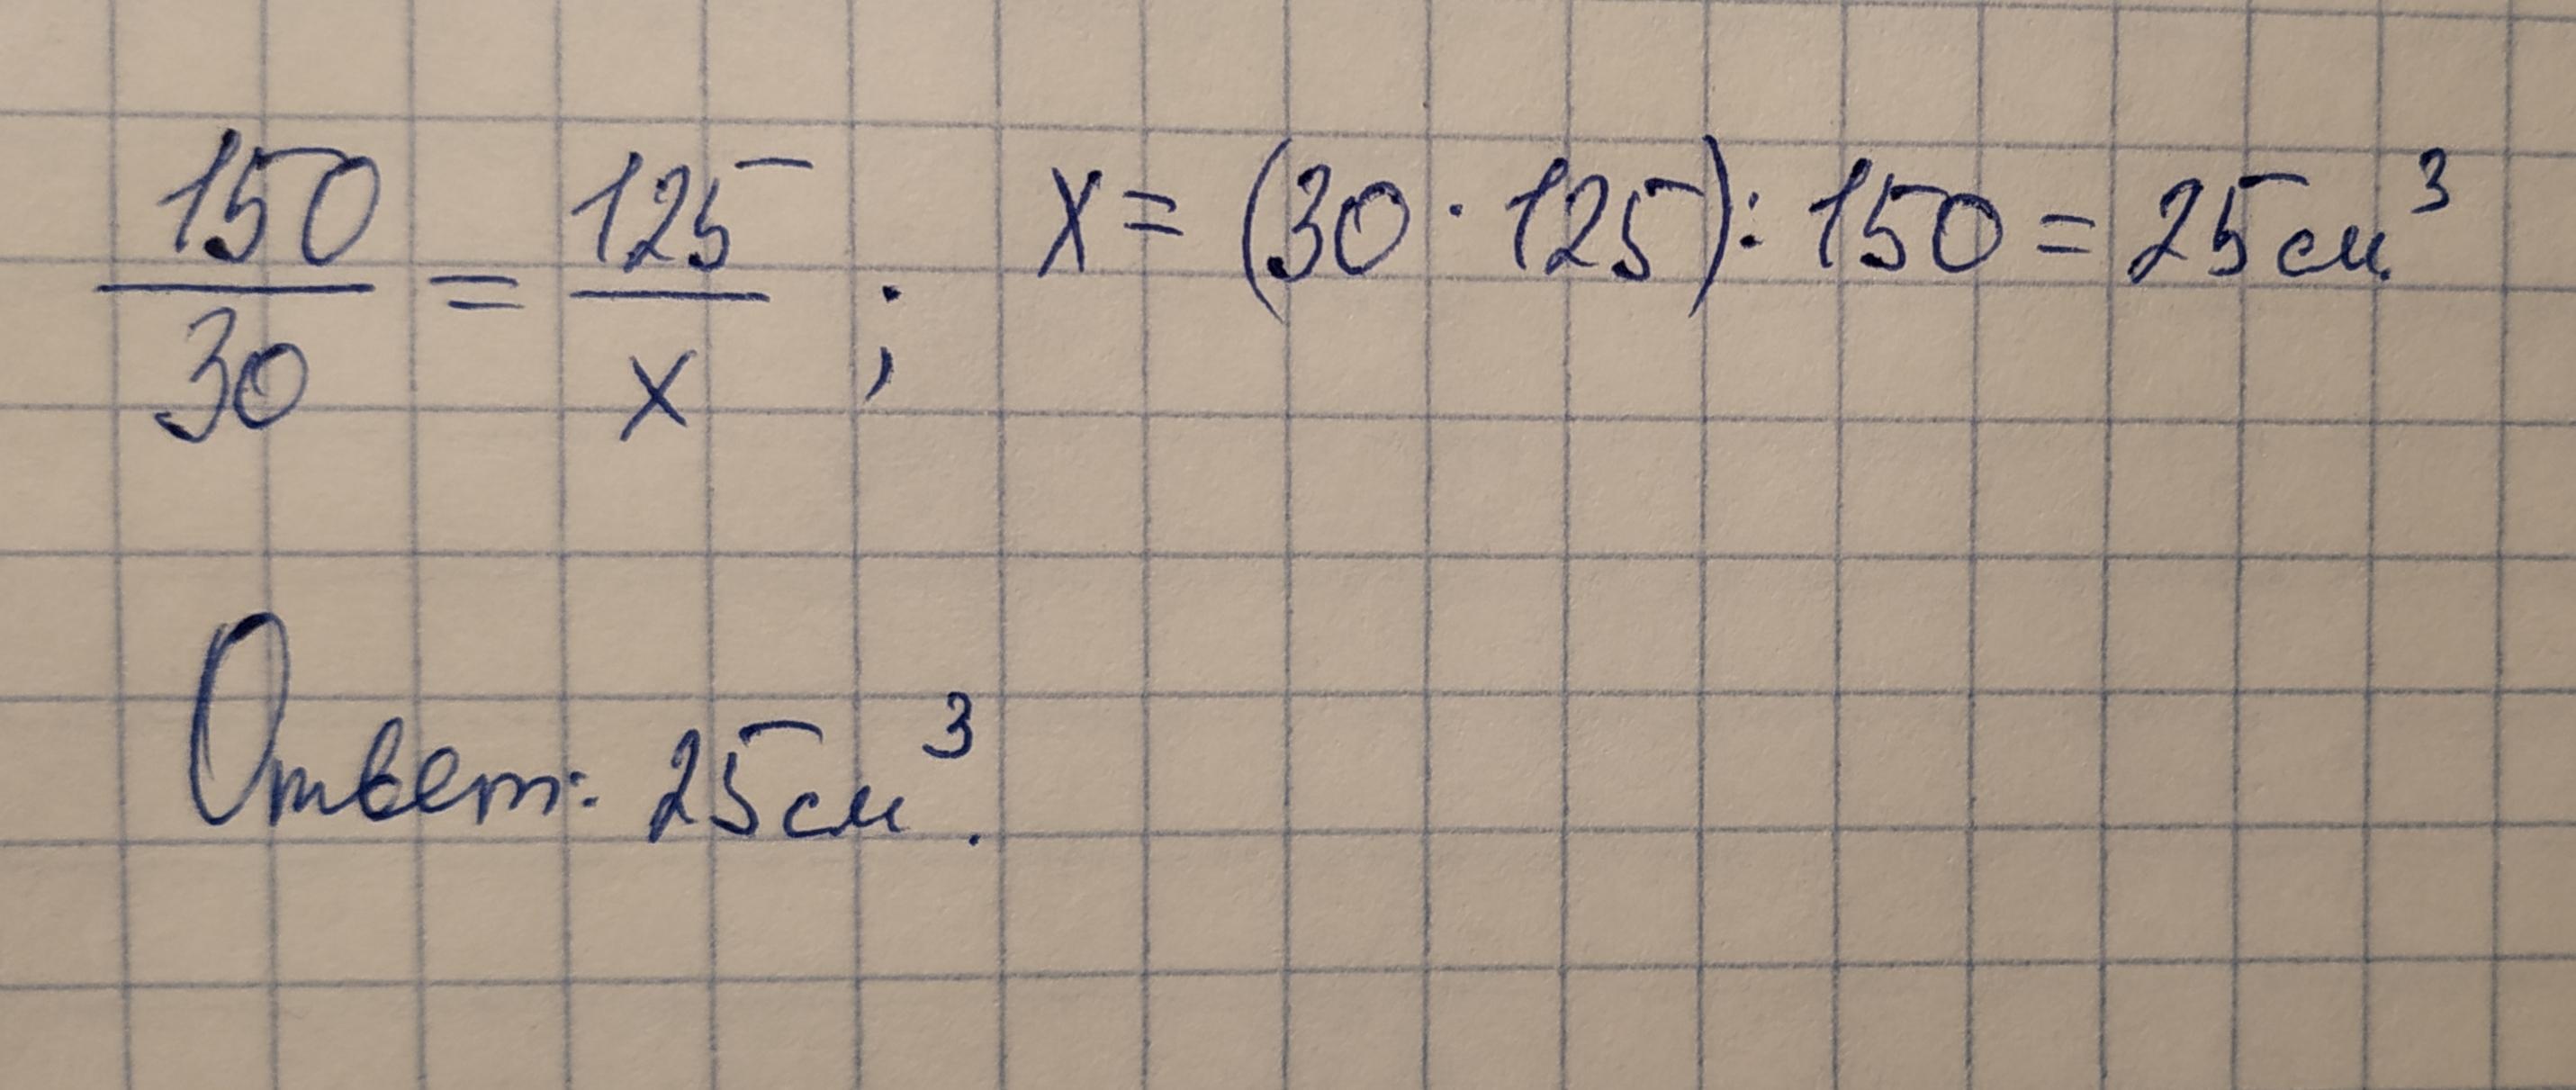 150/30 = 125/x ; x = (30 · 125) : 150 = 25 см³
Ответ: 25 см³.